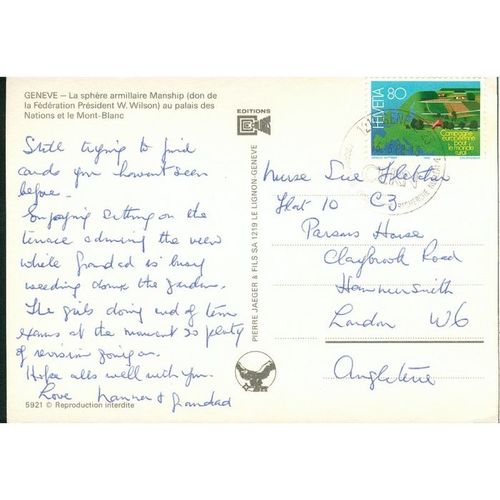 GENEVE – La sphère armillaire Manship (don de
la Fédération Président W. Wilson) au palais des
Nations et le Mont-Blanc
Still trying to find
cards you havent seen
before.
Enjoying sitting on the
terrace admiring the view
while grandad is busy
weeding down the garden.
The girls doing end of term
exams at the moment so plenty
of revision going on.
Hope alls well with you.
Love Nanna & Grandad
5921 © Reproduction interdite
EDITIONS
PIERRE JAEGER & FILS SA 1219 LE LIGNON-GENEVE
HELVETIA 80
Campagne
européenne
pour
le monde
rural
Nurse Sue Fletcher
Flat 10 C3
Parsons House
Claybrook Road
Hammersmith
London W6
Angleterre